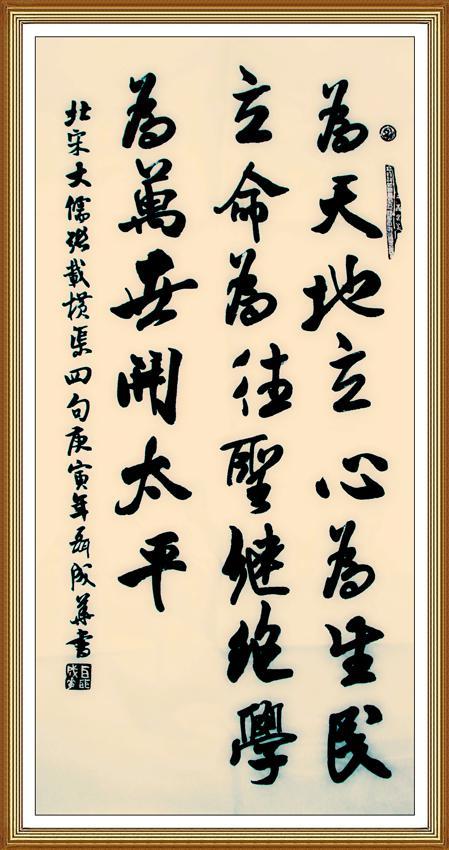 為天地立心為生民
立命為往聖継絕學
為萬世開太平
北宋大儒張載橫渠四句庚寅年聶成華書